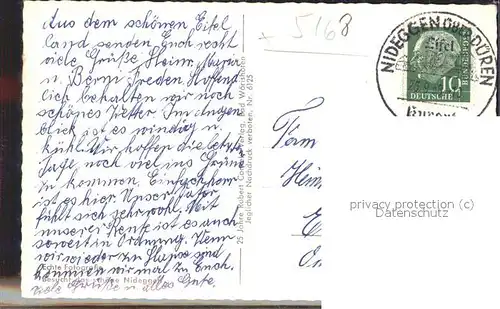 Aus dem schönen Eifel
land senden Euch recht
viele Grüße Heinr. Maria
u. Berni Freden. Hoffent
lich behalten wir noch
schönes Wetter. Im Augen
blick ist es windig u.
kühl. Wir hoffen die letzte
Tage noch viel ins Grüne
zu kommen. Einfach schön
ist es hier. Unser Vater
fühlt sich sehr wohl. Mit
unserer Rente ist es auch
soweit in Ordnung. Wenn
wir wieder zu Hause sind
kommen wir mal zu Euch.
viele Grüße u. alles Gute.
Echte Fotografie
Nideggen
25 Jahre Robert
Verlag, Bad Wörishofen
Jeglicher Nachdruck verboten, Nr. 6125
5168
NIDEGGEN ÜBER DÜREN
Eifel
10
DEUTSCHE
Fam
Hein
privacy protection (c)
Datenschutz